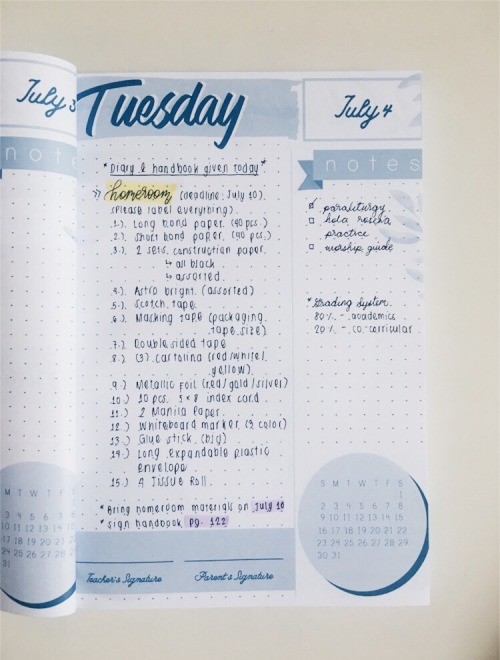 July 3
notes
M T W T F S
3 4 5 6 7 8
10 11 12 13 14 15
17 18 19 20 21 22
24 25 26 27 28 29
31
Tuesday
*Diary & handbook given today*
homeroom (deadline: July 10)
(Please label everything)
1.) Long bond paper (40 pcs.)
2.) Short bond paper (40 pcs.)
3.) 2 sets construction paper
↳ all black
↳ assorted
4.) Astro bright (assorted)
5.) Scotch tape
6.) Masking tape (packaging
tape size)
7.) Double sided tape
8.) (3) cartolina (red/white/
yellow)
9.) Metallic foil (red/gold/silver)
10.) 10 pcs. 5x8 index card
11.) 2 Manila Paper
12.) Whiteboard marker (3 color)
13.) Glue stick (big)
14.) Long expandable plastic
envelope
15.) 4 Tissue Roll
*Bring homeroom materials on July 10
*sign handbook pg. 122
Teacher's Signature
Parent's Signature
July 4
notes
paraliturgy
practice
worship guide
*Grading System
80% - academics
20% - co-curricular
S M T W T F S
1
2 3 4 5 6 7 8
9 10 11 12 13 14 15
16 17 18 19 20 21 22
23 24 25 26 27 28 29
30 31